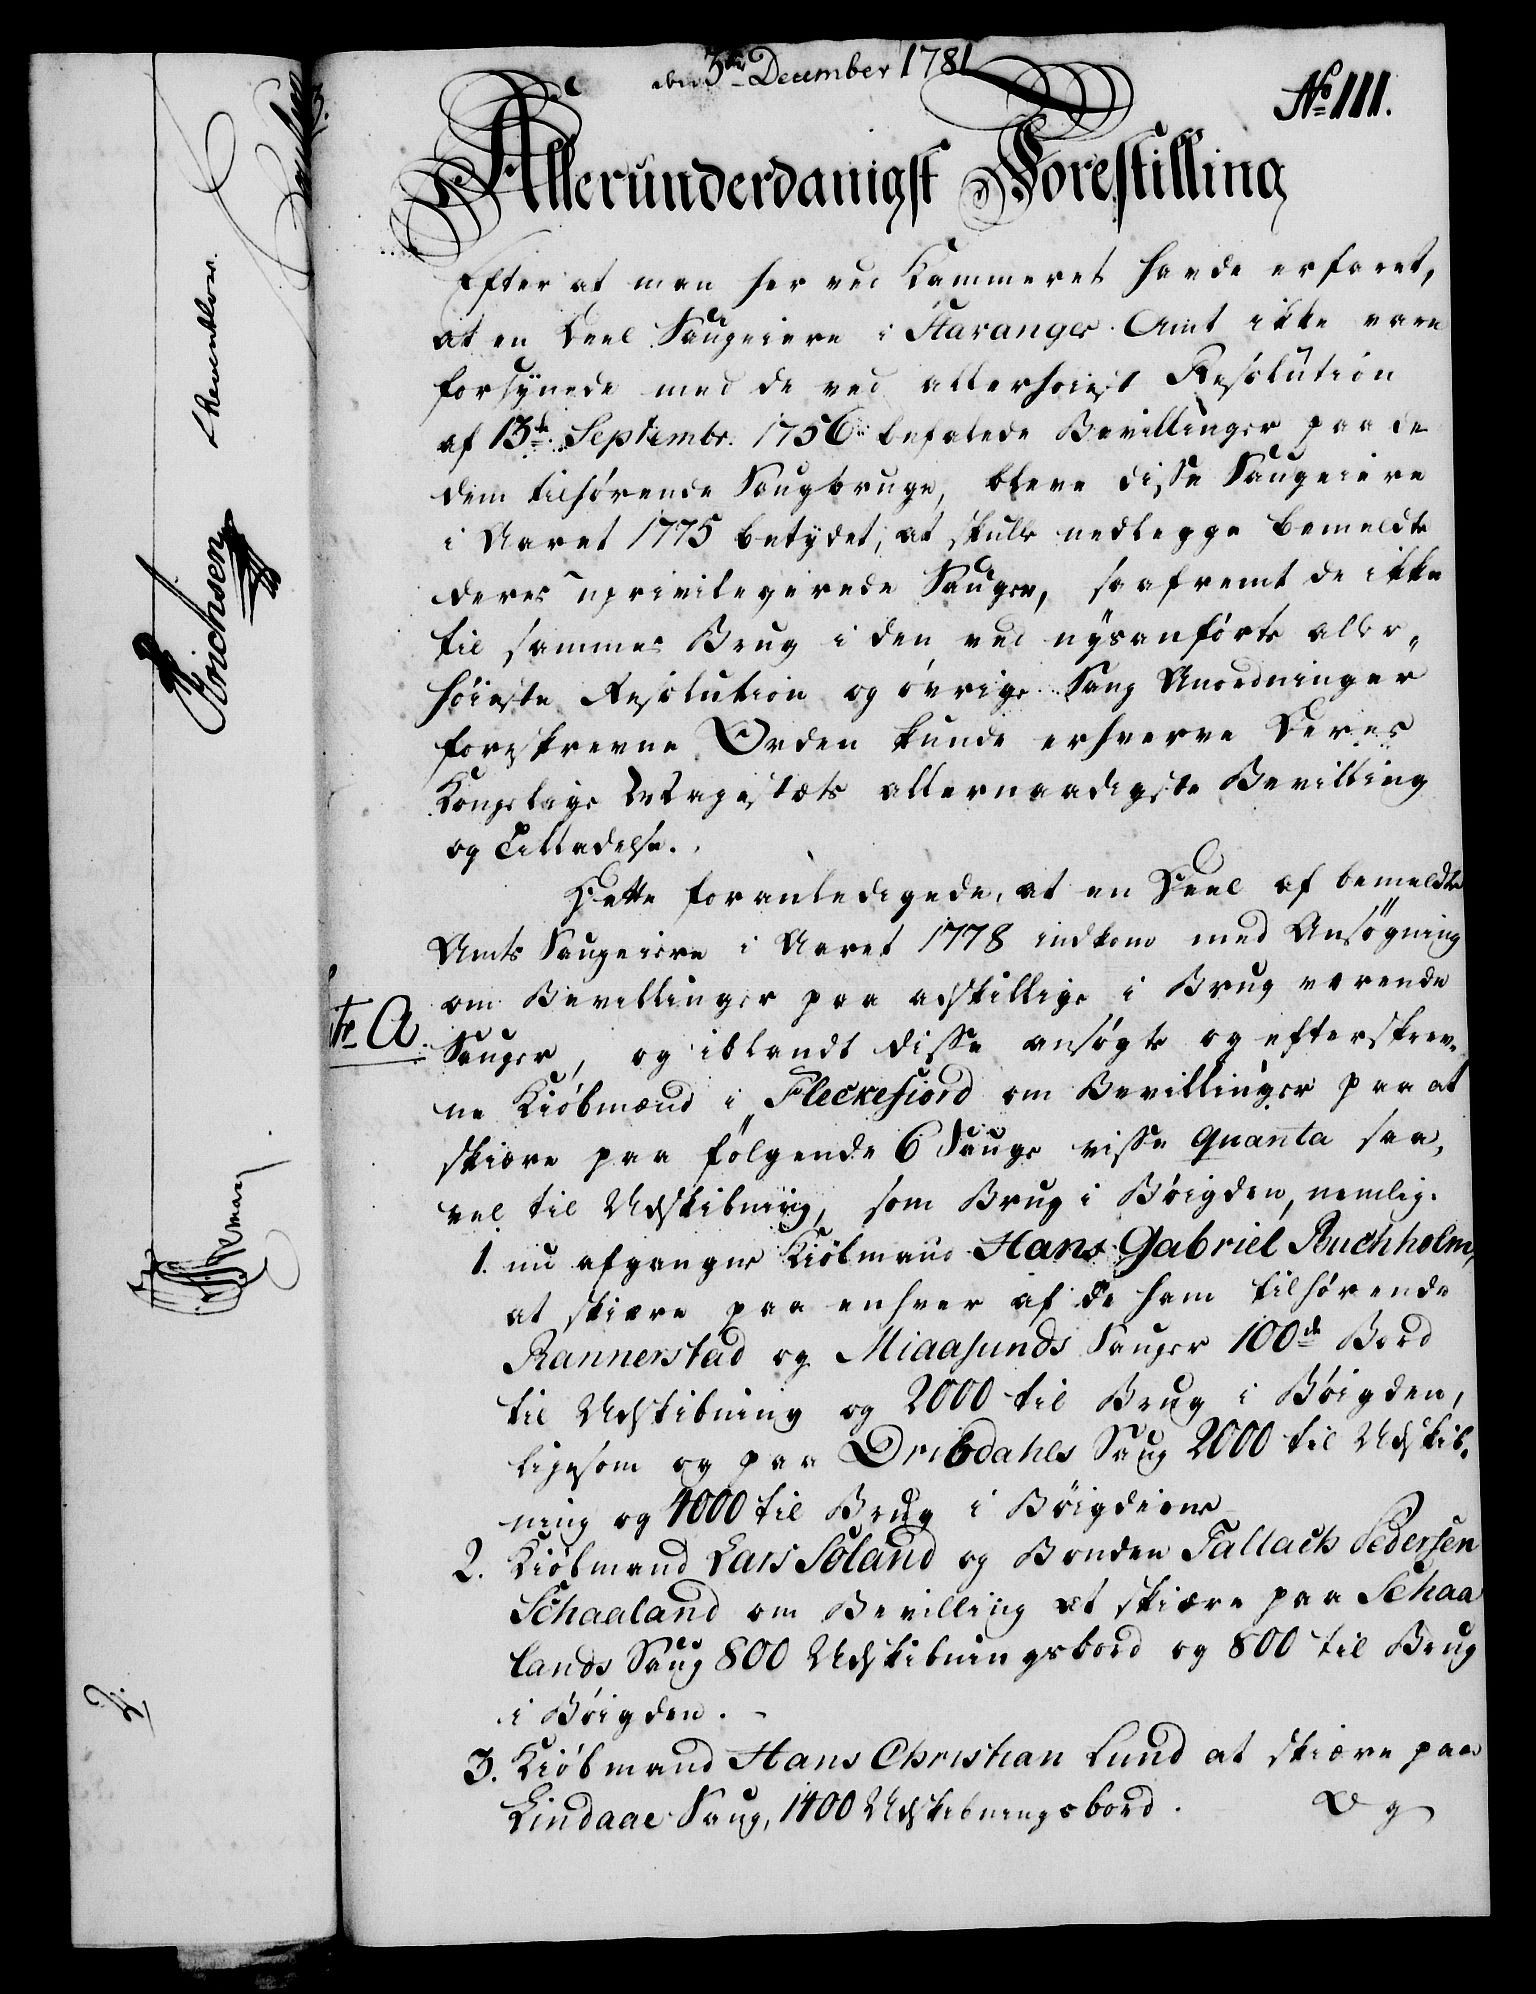 den 3die December 1781
No 111.
Allerunderdanigst Forestilling
Efter at man her ved Kammeret havde erfaret,
at en Deel Saugeiere i Stavanger Amt ikke vare
forsÿnede med de ved allerhøiest Resolution
af 13de Septembr. 1756 befalede Bevillinger paa de
dem tilhørende Saugbruge, bleve disse Saugeiere
i Aaret 1775 betÿdet, at skulle nedlegge bemeldte
deres uprivilegerede Sauger, saafremt de ikke
til sammes Brug i den ved nÿsanførte aller„
høieste Resolution og øvrige Saug Anordninger
foreskrevne Orden kunde erhverve Deres
Kongelige Majestæts allernaadigste Bevilling
og Tilladelse.
Dette foranledigede, at en Deel af bemeldte
Amts Saugeiere i Aaret 1778 indkom med Ansøgning
om Bevillinger paa adskillige i Brug værende
Lit. A.
Sauger, og iblandt disse ansøgte og efterskrev„
ne Kiøbmænd i Fleckefiord om Bevillinger paa at
skiære paa følgende 6 Sauge visse Quanta saa„
vel til Udskibning, som Brug i Bøigden, nemlig.
1. nu afgangne Kiøbmand Hans Gabriel Buchholm,
at skiære paa enhver af de ham tilhørende
Rannerstad og Miaasunds Sauger 100de Bord
til Udskibning og 2000 til Brug i Bøigden,
ligesom og paa Dribdahls Saug 2000 til Udskib„
ning og 4000 til Brug i Bøigderne
2. Kiøbmand Lars Søland og Bonden Tallach Pedersen
Schaaland om Bevilling at skiære paa Schaa
lands Saug 800 Udskibningsbord og 800 til Brug
i Bøigden.
3. Kiøbmand Hans Christian Lund at skiære paa
Lindaae Saug, 1400 Udskibningsbord.
Og
Reventlow.
Erichsen